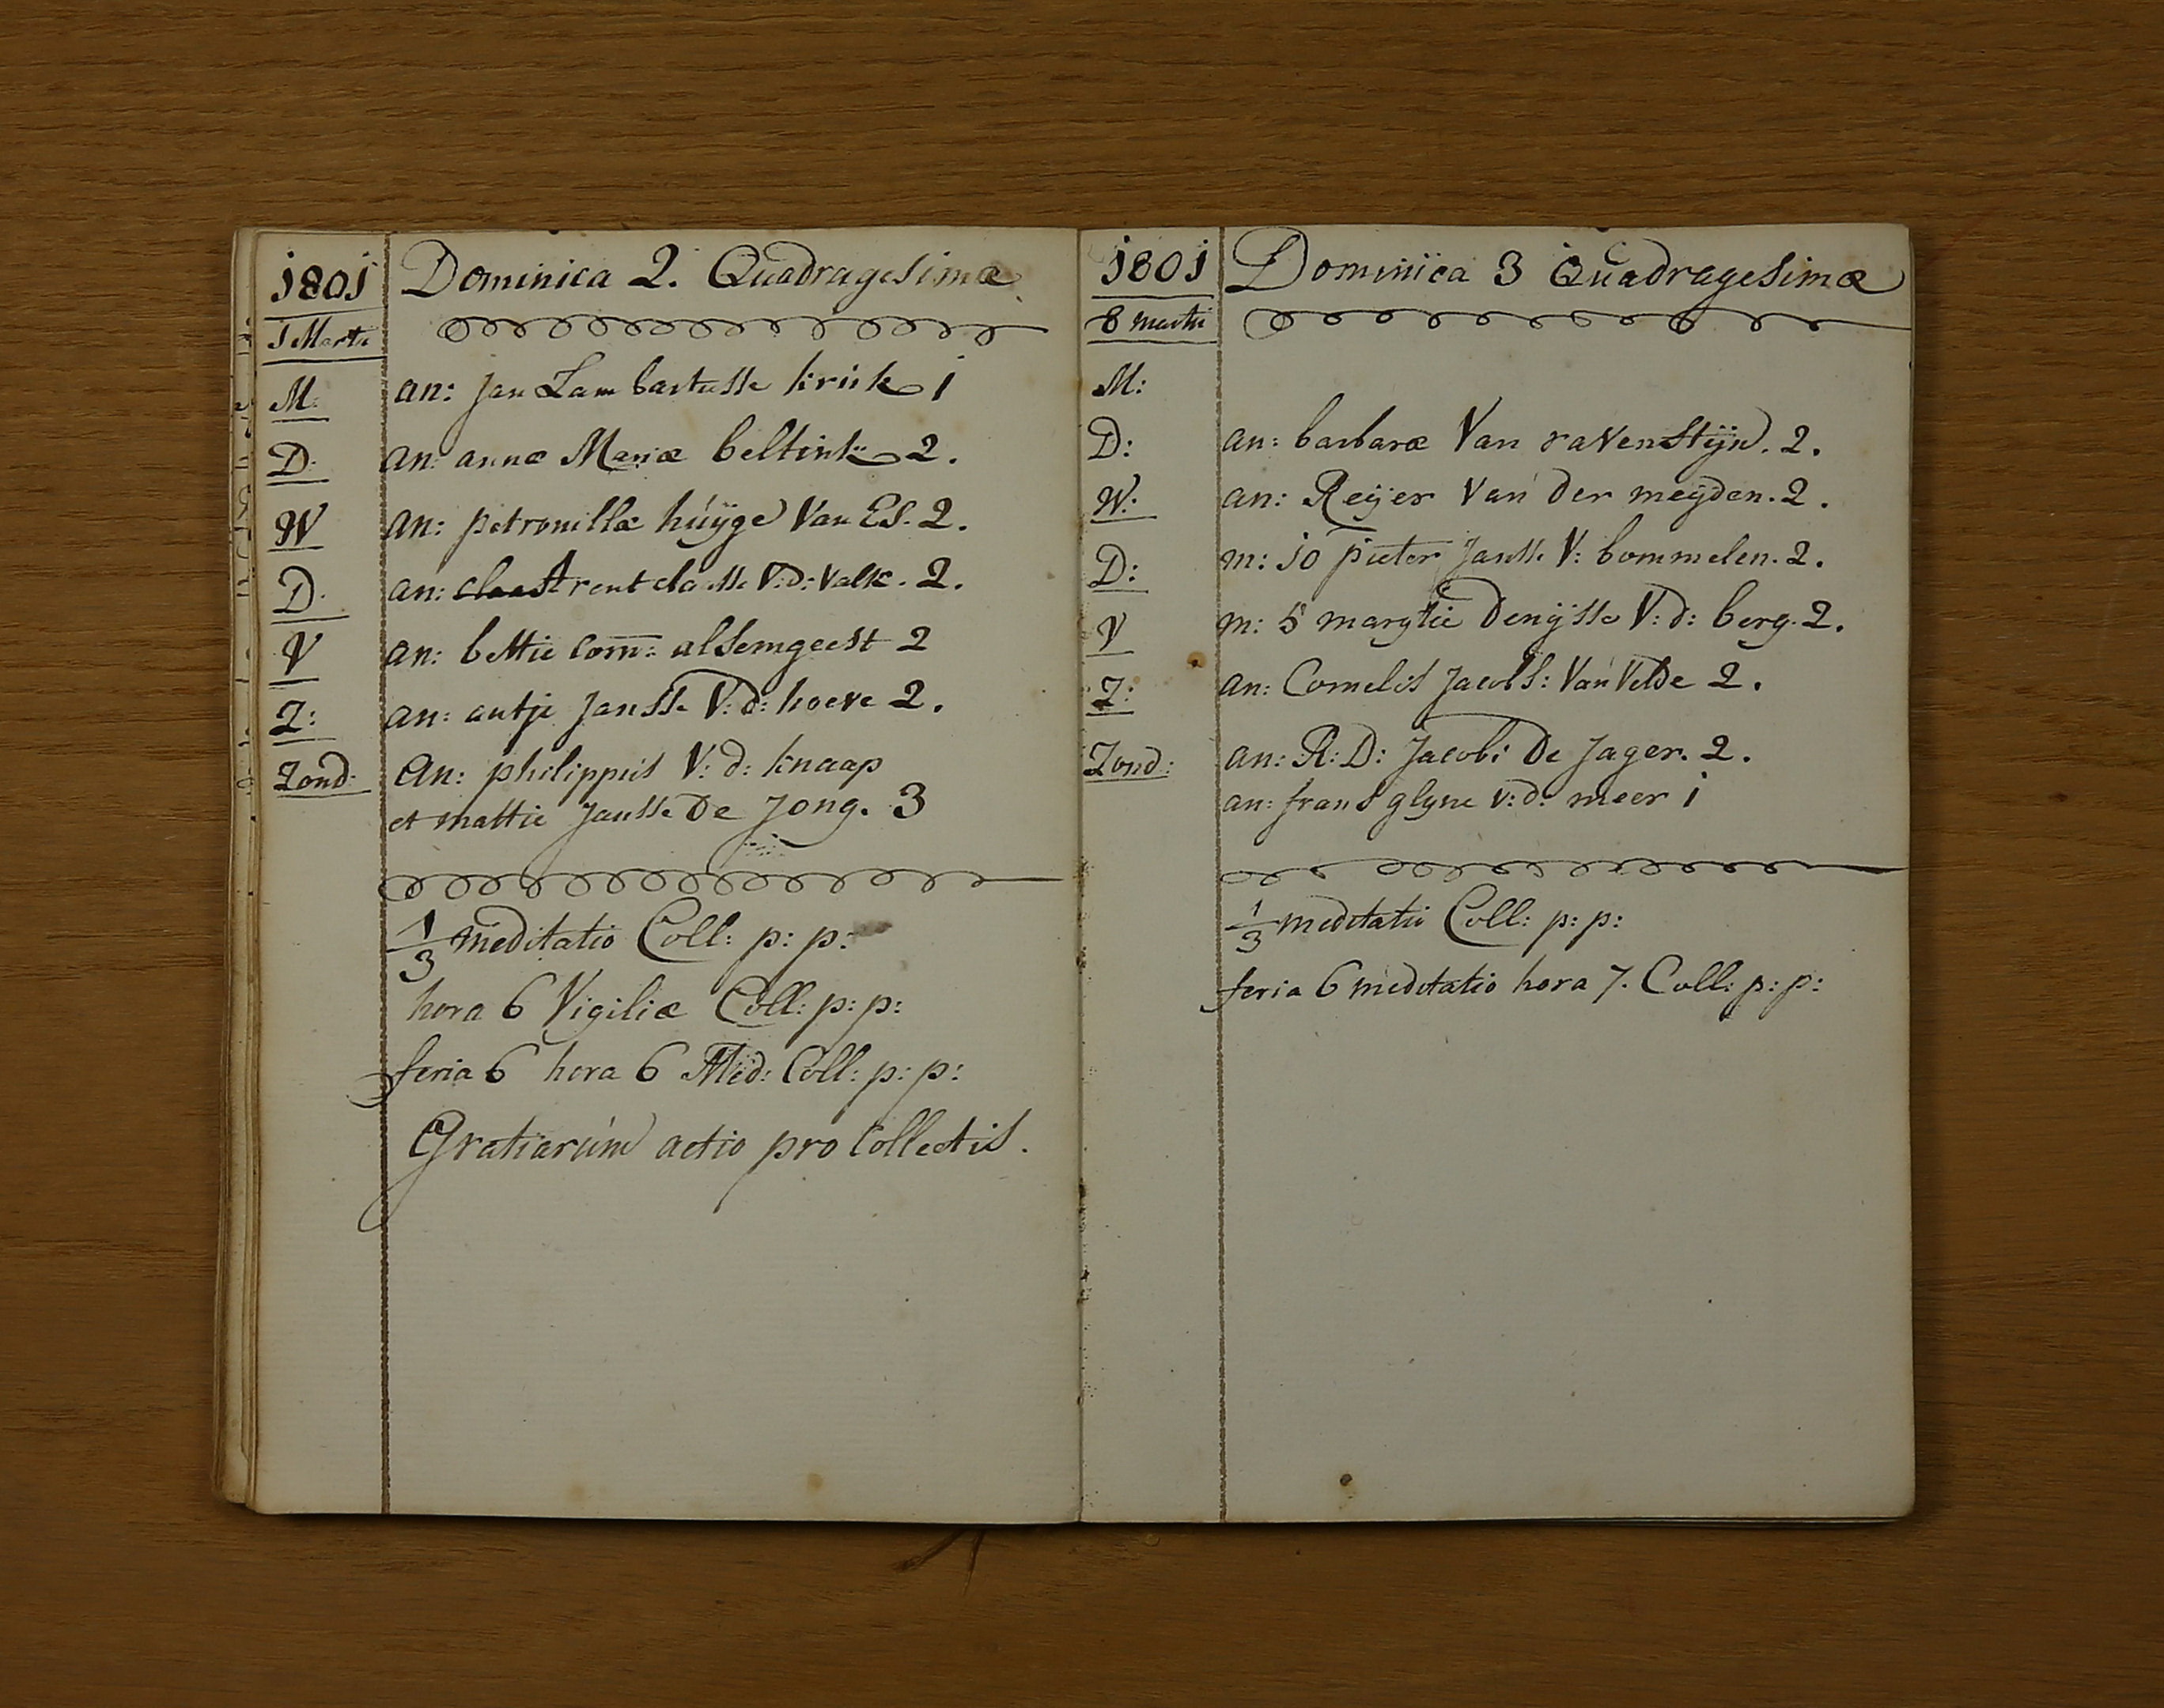 1801 Dominica 2. Quadragesimæ
1 Martii
M. an: Jan Lambartusse kriik 1
D. an: annæ Mariæ beltink 2.
W an: petronillæ húÿge Van ES. 2.
D. an: claas Arent claasse V: d: Valk. 2.
V an: bettie Corn: alsemgeest 2
Z: an: antje Jansse V: d: hoeve 2.
Zond: An: philippus V: d: knaap
et mattie Jansse De Jong. 3
1/3 meditatio Coll: p: p:
hora 6 Vigiliæ Coll: p: p:
feria 6 hora 6 Med: Coll: p: p:
Gratiarúm actio pro Collectis.
1801 Dominica 3 Quadragesimæ
8 martii
M:
D: an: barbaræ Van ravenstÿn. 2.
W. an: Reÿer Van der meÿden. 2.
D: m: 10 pieter Jansse V: bommelen. 2.
V m: 5 marytie Denÿsse V: d: berg. 2.
Z: an: Cornelis Jacobs: Van Velde 2.
Zond: an: R: D: Jacobi De Jager. 2.
an: frans glyne v: d: meer 1
1/3 meditatio Coll: p: p:
feria 6 meditatio hora 7. Coll: p: p: